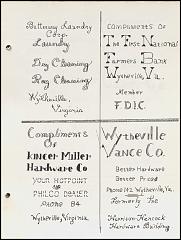 Bittinny Laundry
Corp.
Laundry
Dry Cleaning
Rug Cleaning
Wytheville,
Virginia
Compliments Of
The First National
Farmers Bank
Wytheville, Va.
Member
F.D.I.C.
Compliments
Of
Kincer-Miller
Hardware Co
Your HOTPOINT
and PHILCO Dealer
Phone 84
Wytheville, Virginia
Wytheville
Vance Co.
Better Hardware
Better Prices
Phone 142 Wytheville, Va.
Formerly The
Harrison-Hancock
Hardware Building